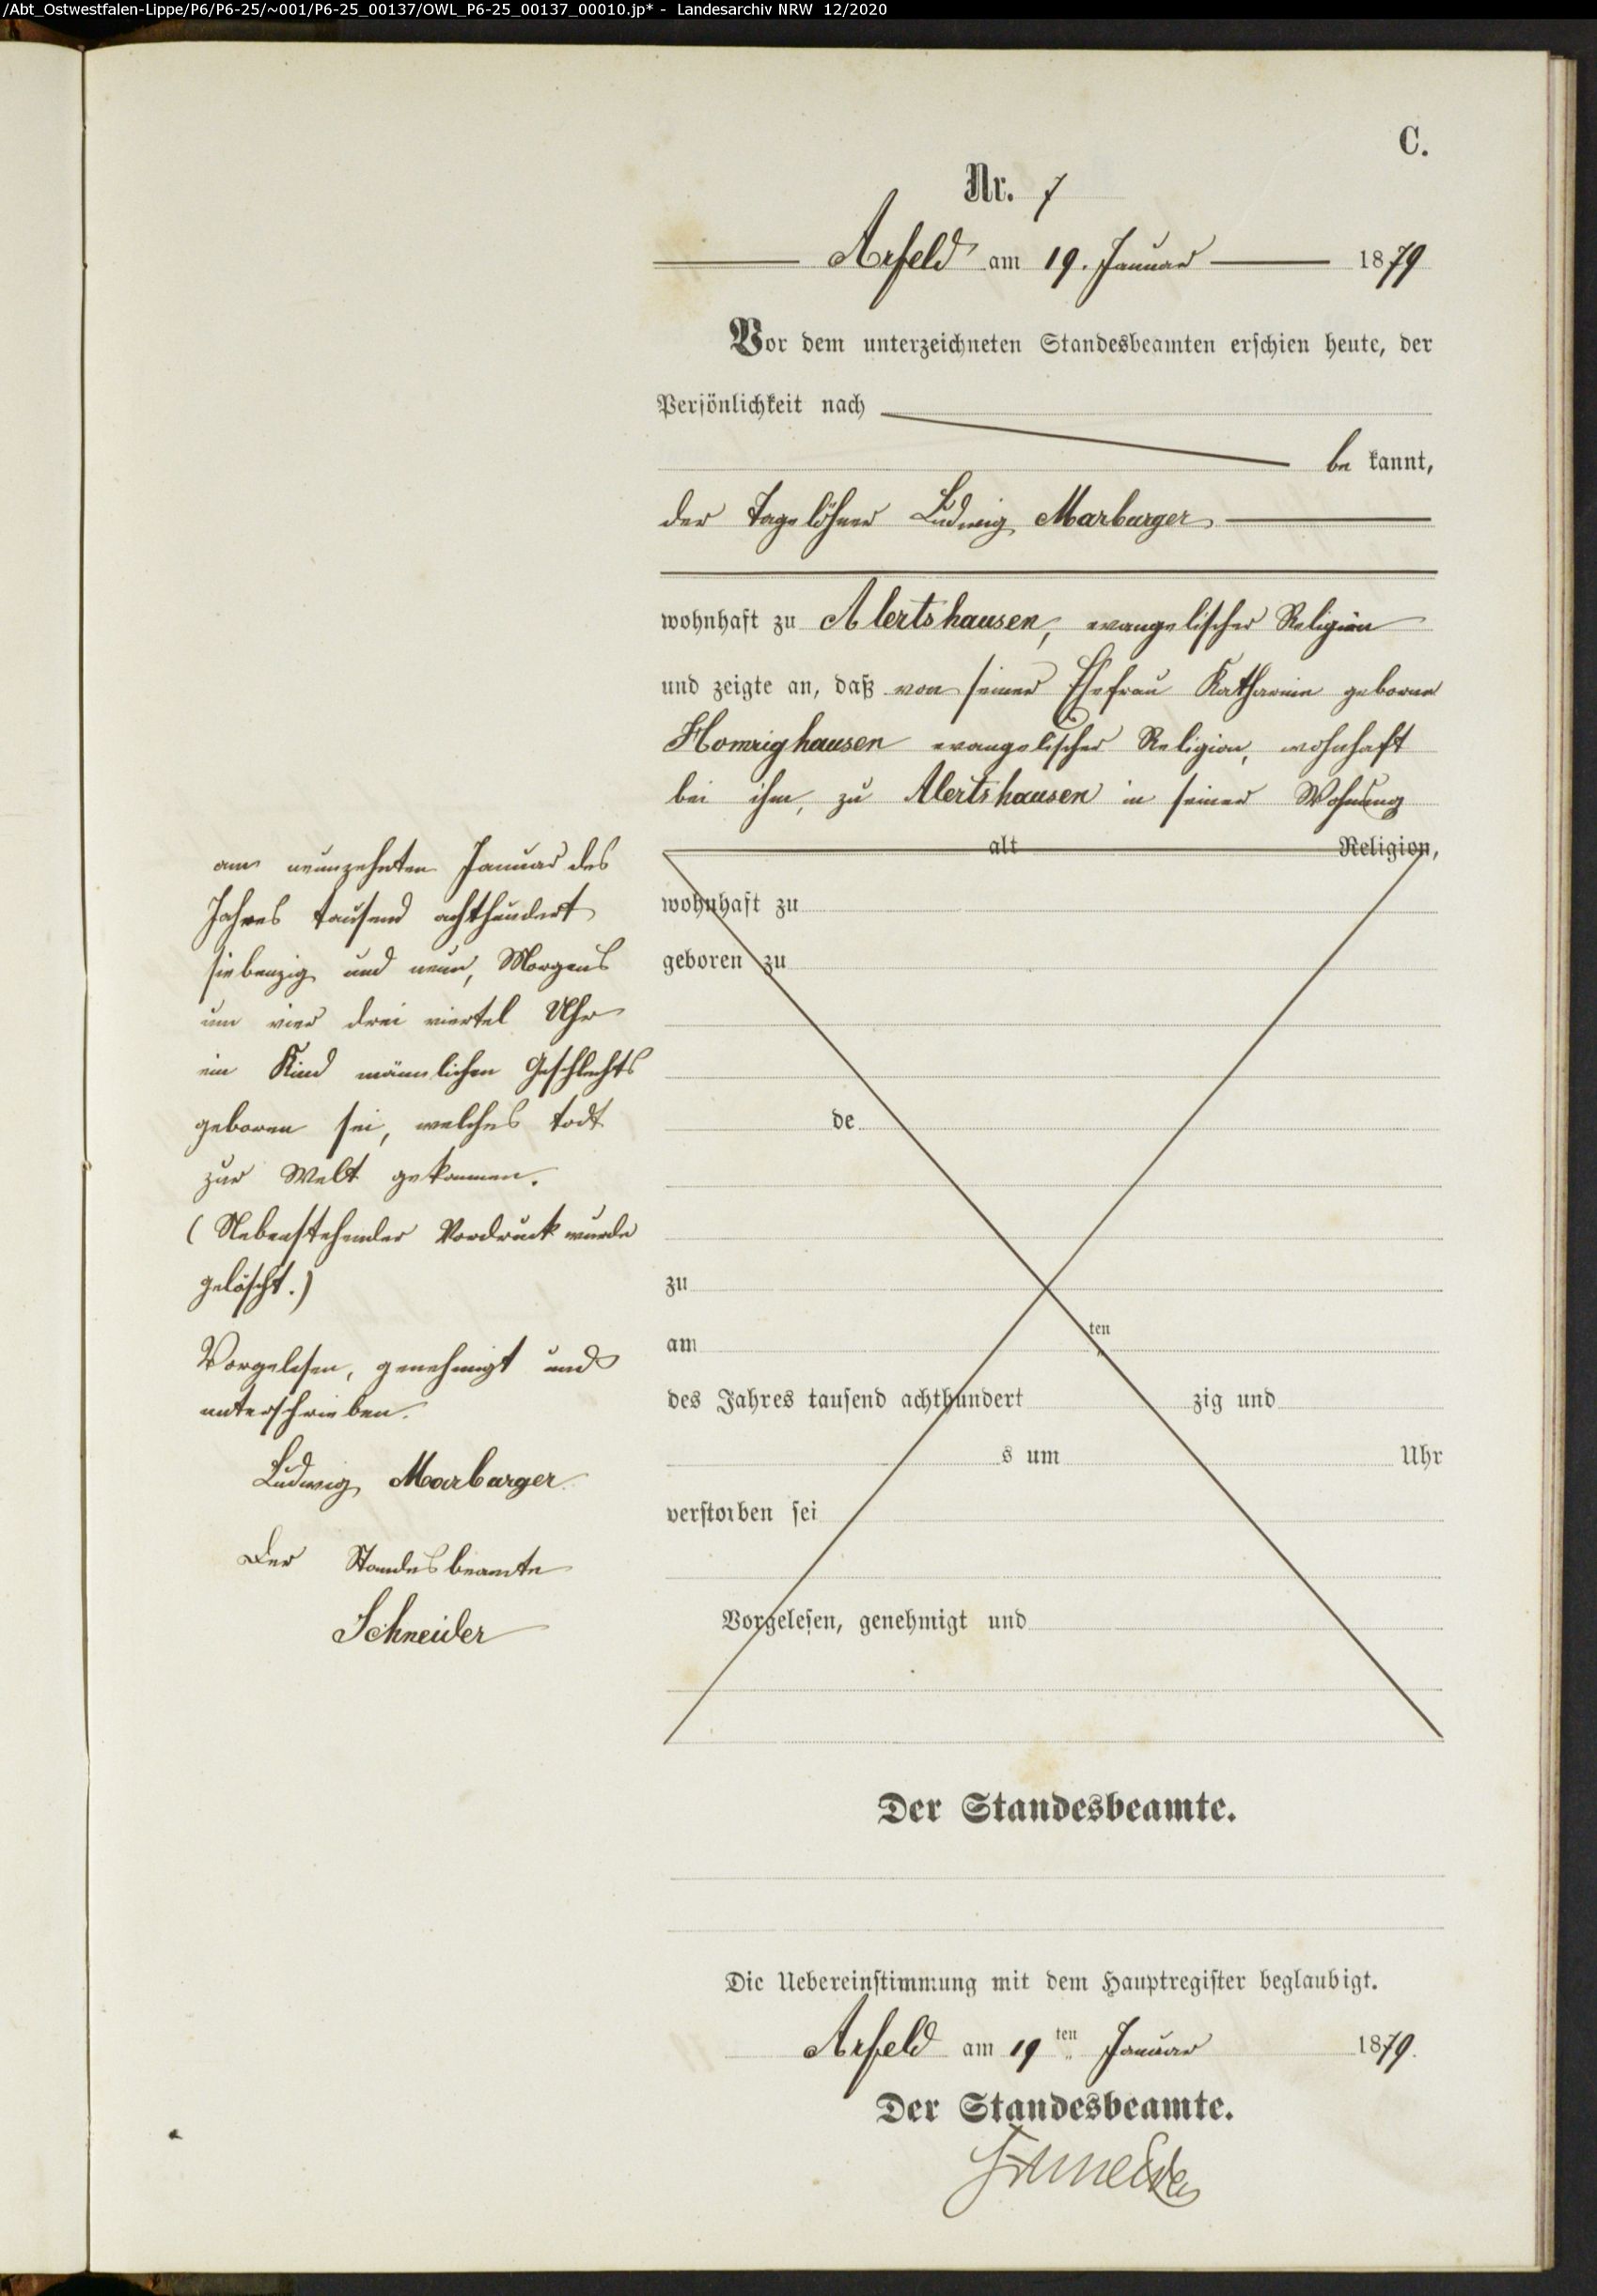 /Abt_Ostwestfalen-Lippe/P6/P6-25/~001/P6-25_00137/OWL_P6-25_00137_00010.jp* - Landesarchiv NRW 12/2020
C.
Nr. 7
Arfeld am 19. Januar 1879
Vor dem unterzeichneten Standesbeamten erschien heute, der
Persönlichkeit nach
be kannt,
der Tagelöhner Ludwig Marburger
wohnhaft zu Alertshausen, evangelischer Religion
und zeigte an, daß von seiner Ehefrau Katharine geborne
Homrighausen evangelischer Religion, wohnhaft
bei ihm, zu Alertshausen in seiner Wohnung
am neunzehnten Januar des
Jahres tausend achthundert
siebenzig und neun, Morgens
um vier drei viertel Uhr
ein Kind männlichen Geschlechts
geboren sei, welches todt
zur Welt gekommen.
(Nebenstehender Vordruck wurde
gelöscht.)
Vorgelesen, genehmigt und
unterschrieben.
Ludwig Marburger
Der Standesbeamte
Schneider
alt Religion,
wohnhaft zu
geboren zu
de
zu
am ten
des Jahres tausend achthundert zig und
s um Uhr
verstorben sei
Vorgelesen, genehmigt und
Der Standesbeamte.
Die Uebereinstimmung mit dem Hauptregister beglaubigt.
Arfeld am 19 ten Januar 1879.
Der Standesbeamte.
Schneider